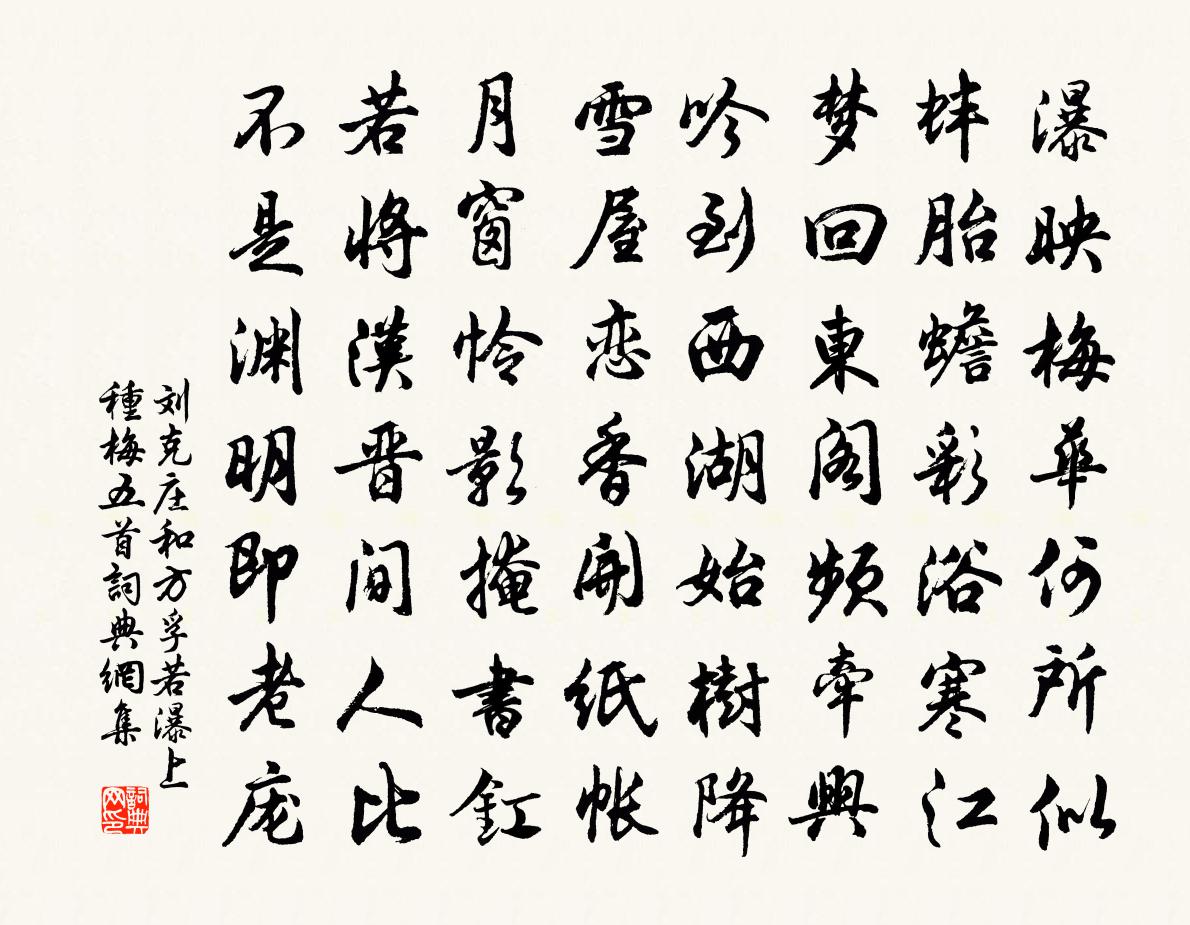 瀑映梅華何所似
蚌胎蟾彩浴寒江
梦回東阁频牵興
吟到西湖始樹降
雪屋恋香開纸帐
月窗怜影掩書釭
若将漢晋间人比
不是渊明即老庞
刘克庄和方孚若瀑上
種梅五首詞典網集
詞典网印